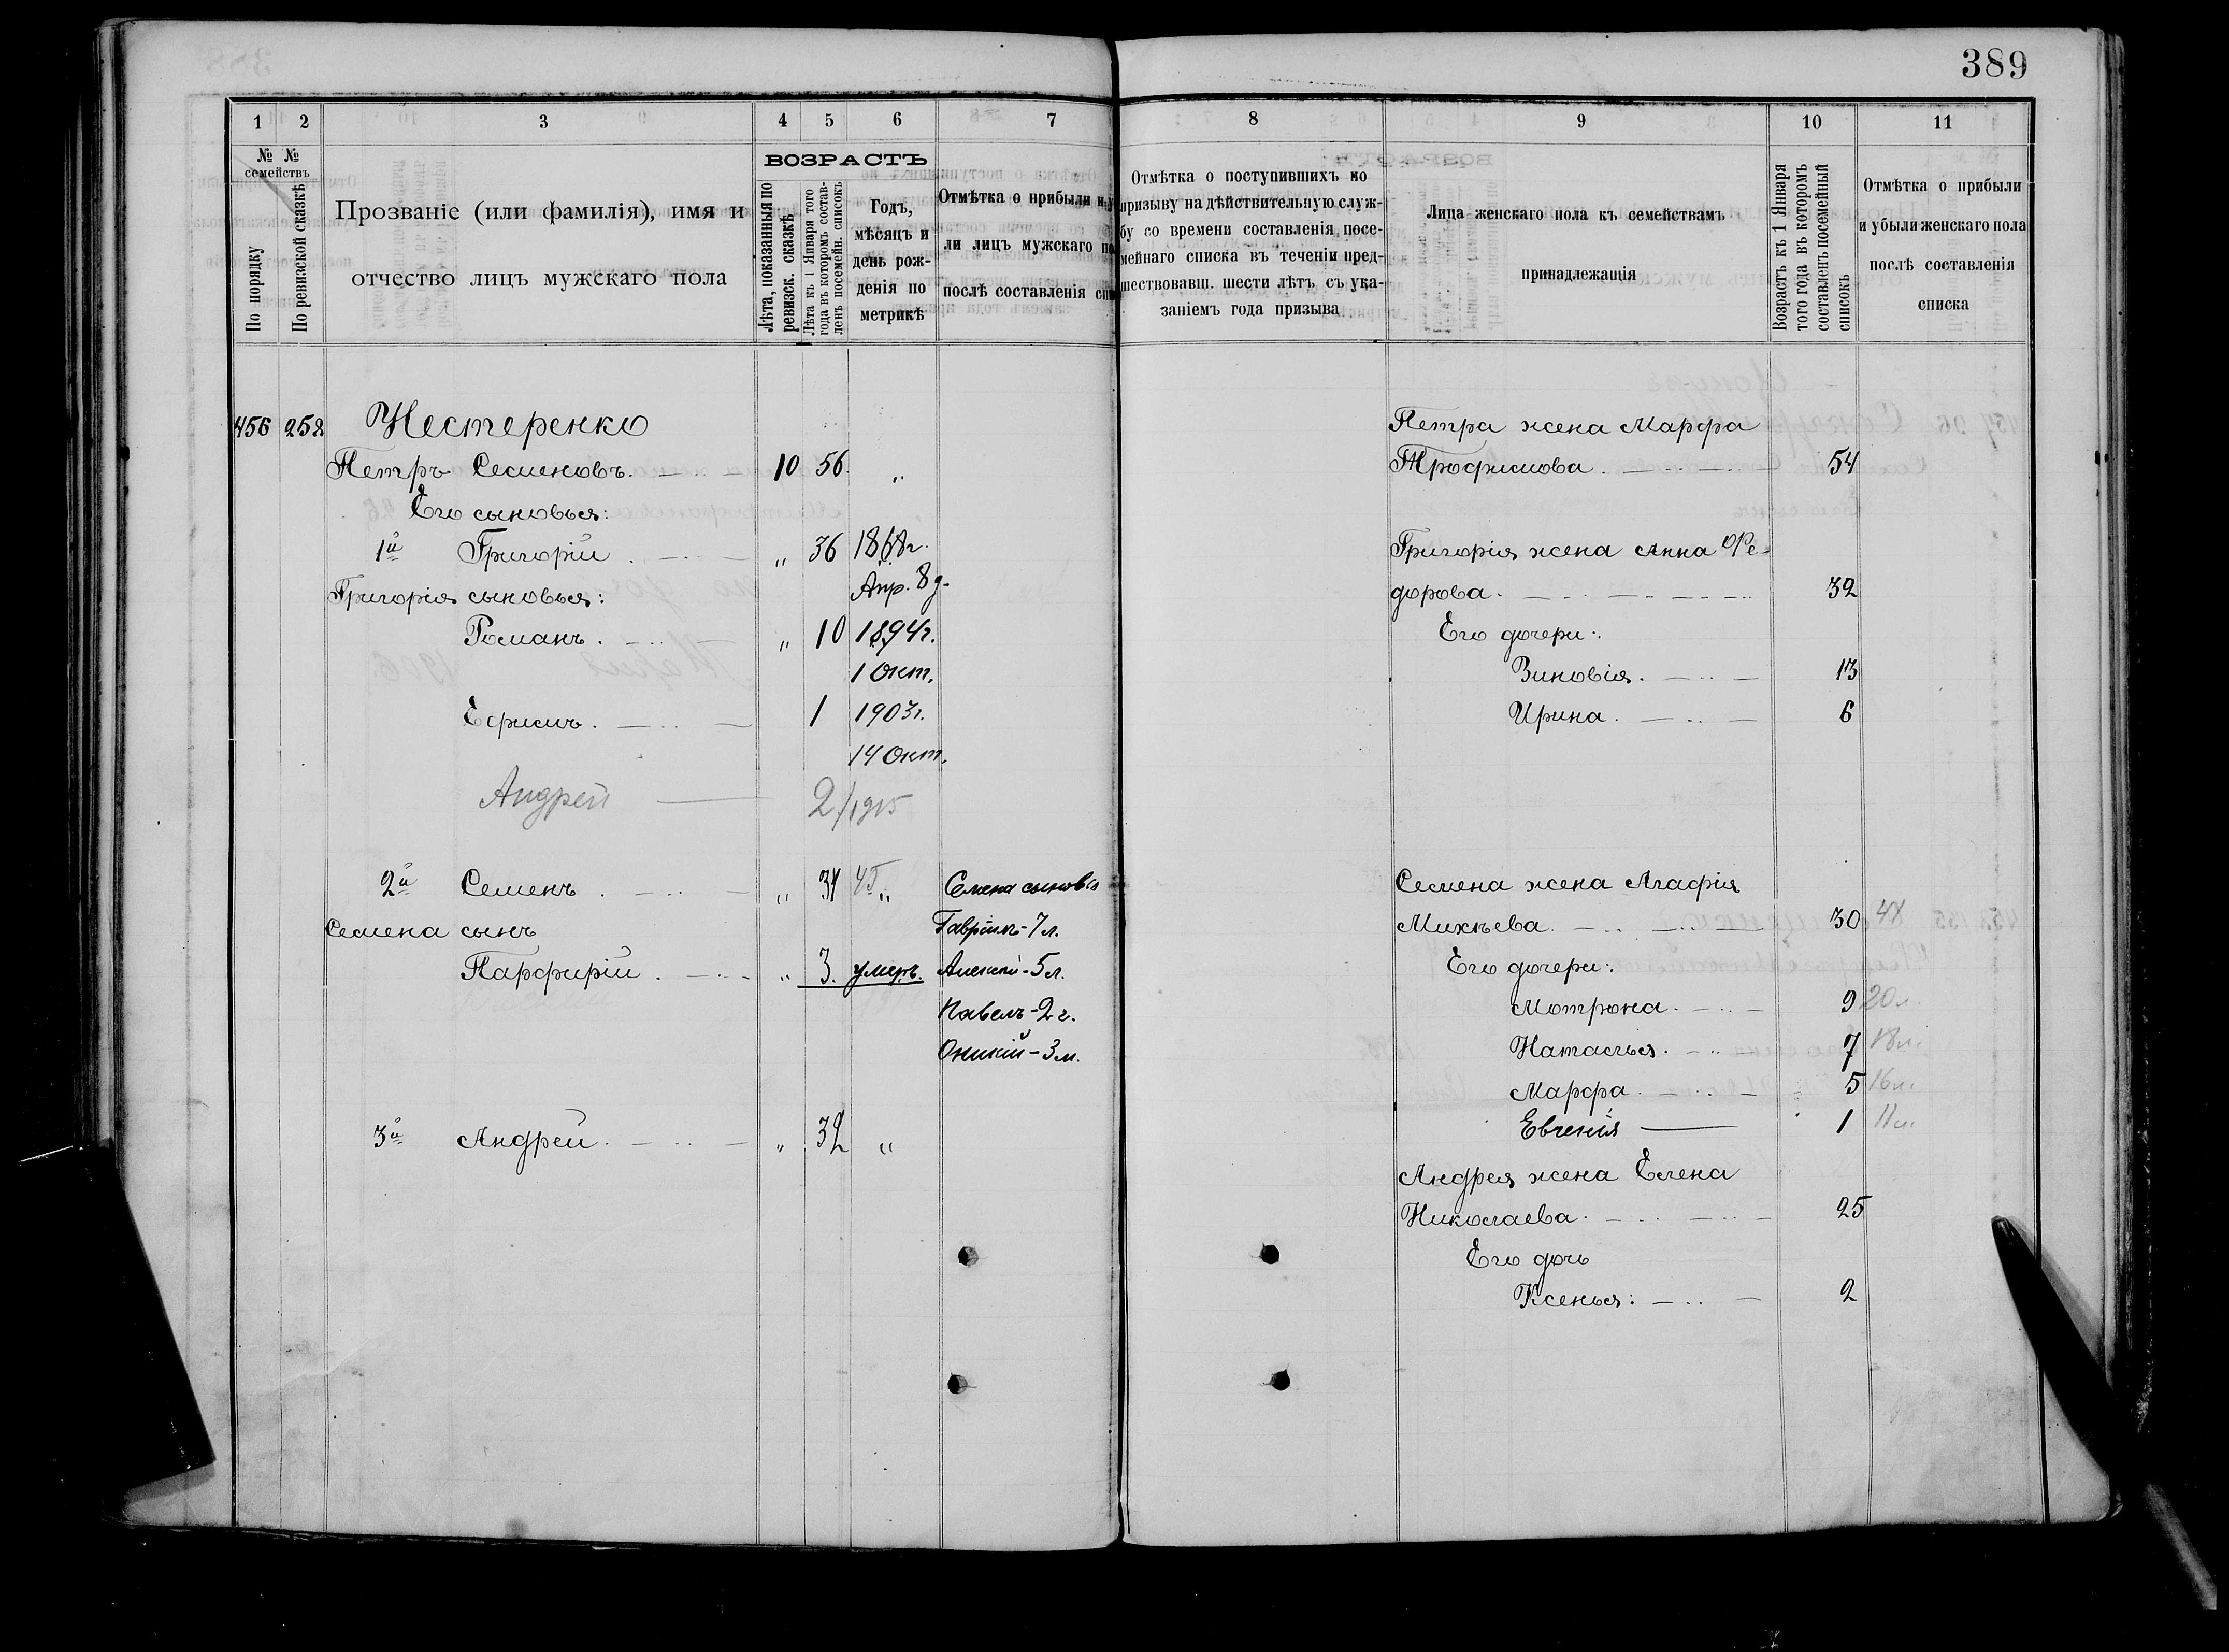 389
1 2 3 4 5 6 7
№ №
семействъ
По порядку
По ревизской сказкѣ
Прозваніе (или фамилія), имя и
отчество лицъ мужскаго пола
ВОЗРАСТЪ
Лѣта, показанныя по
ревизск. сказкѣ
Лѣта къ 1 Января того
года въ которомъ состав-
ленъ посемейн. списокъ
Годъ,
мѣсяцъ и
день рож-
денія по
метрикѣ
Отмѣтка о прибыли и у
ли лицъ мужскаго по
послѣ составленія спи
456 258 Нестеренко
Петръ Семеновъ. 10 56. „
Его сыновья:
1й Григорій „ 36 1868г.
Апр. 8 д.
Григорія сыновья:
Романъ. „ 10 1894г.
1 Окт.
Ефимъ. 1 1903г.
14 Окт.
Андрей 2/1915
2й Семенъ „ 34 45 „ Семена сыновья
Семена сынъ Гавріилъ - 7 л.
Парфирій „ 3. умеръ. Алексѣй - 5 л.
Павелъ - 2 г.
Оникій - 3 м.
3й Андрей. „ 32 „
8 9 10 11
Отмѣтка о поступившихъ по
призыву на дѣйствительную служ-
бу со времени составленія посе-
мейнаго списка въ теченіи пред-
шествовавш. шести лѣтъ съ ука-
заніемъ года призыва
Лица женскаго пола къ семействамъ
принадлежащія
Возрастъ къ 1 Января
того года въ которомъ
составленъ посемейный
списокъ
Отмѣтка о прибыли
и убыли женскаго пола
послѣ составленія
списка
Петра жена Марфа
Трофимова. 54
Григорія жена Анна Фе-
дорова. 32
Его дочери:
Зиновія. 13
Ирина. 6
Семена жена Агафія
Михѣева. 30 48
Его дочери:
Мотрона. 9 20 л.
Наталья. 7 18 л.
Марфа. 5 16 л.
Евгенія 1 11 л.
Андрея жена Елена
Николаева. 25
Его дочь
Ксенья: 2